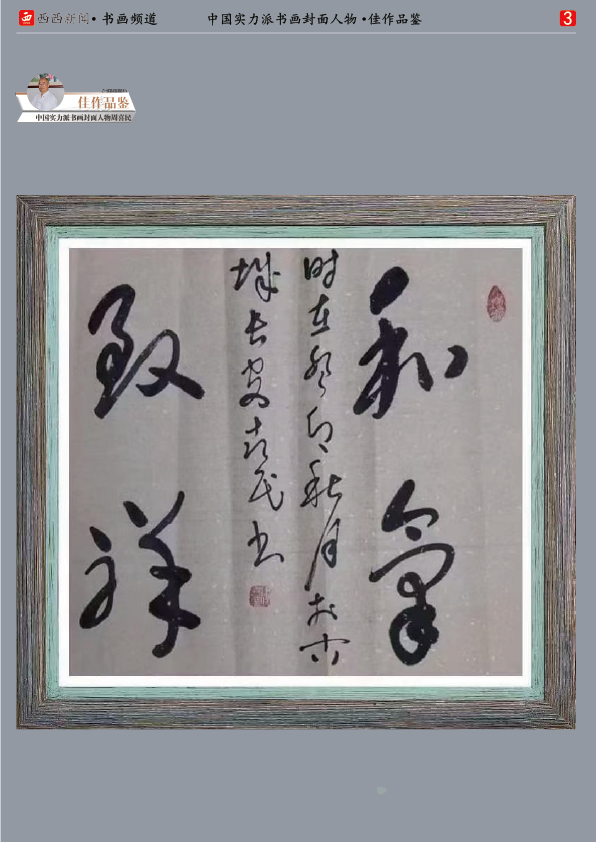 西西新闻•书画频道
中国实力派书画封面人物•佳作品鉴
3
佳作品鉴
中国实力派书画封面人物周喜民
和气
时在癸卯秋月于古
城长安喜民书
致祥